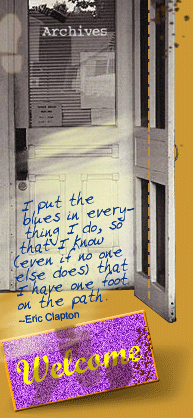 Archives
I put the
blues in every-
thing I do, so
that I know
(even if no one
else does) that
I have one foot
on the path.
--Eric Clapton
Welcome